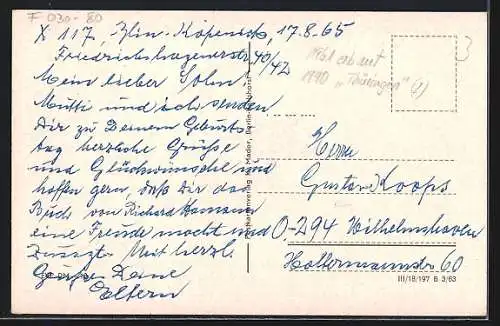 F 030-80
X 117, Bln-Köpenick, 17.8.65
Friedrichshagenerstr 40/42
Mein lieber Sohn
Mutti und ich senden
Dir zu Deinem Geburts
tag herzliche Grüße
und Glückwünsche und
hoffen gern, daß Dir das
Buch von Richard Hamann
eine Freude macht und
zusagt. Mit herzl.
Grüßen Deine
Eltern
1961 erbaut
1990 „Thüringen"
Herrn
Gustav Koops
O-294 Wilhelmshaven
Holtermannstr 60
III/18/197 B 3/63